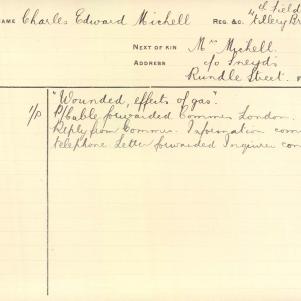 NAME Charles Edward Michell REG. &C. 4th Field
Artillery Br
NEXT OF KIN Mrs Michell.
ADDRESS c/o Sneyds
Rundle Street.
1/P "Wounded, effects of gas".
P/Cable forwarded Commrs London.
Reply from Commrs. Information com
telephone Letter forwarded Inquirer com